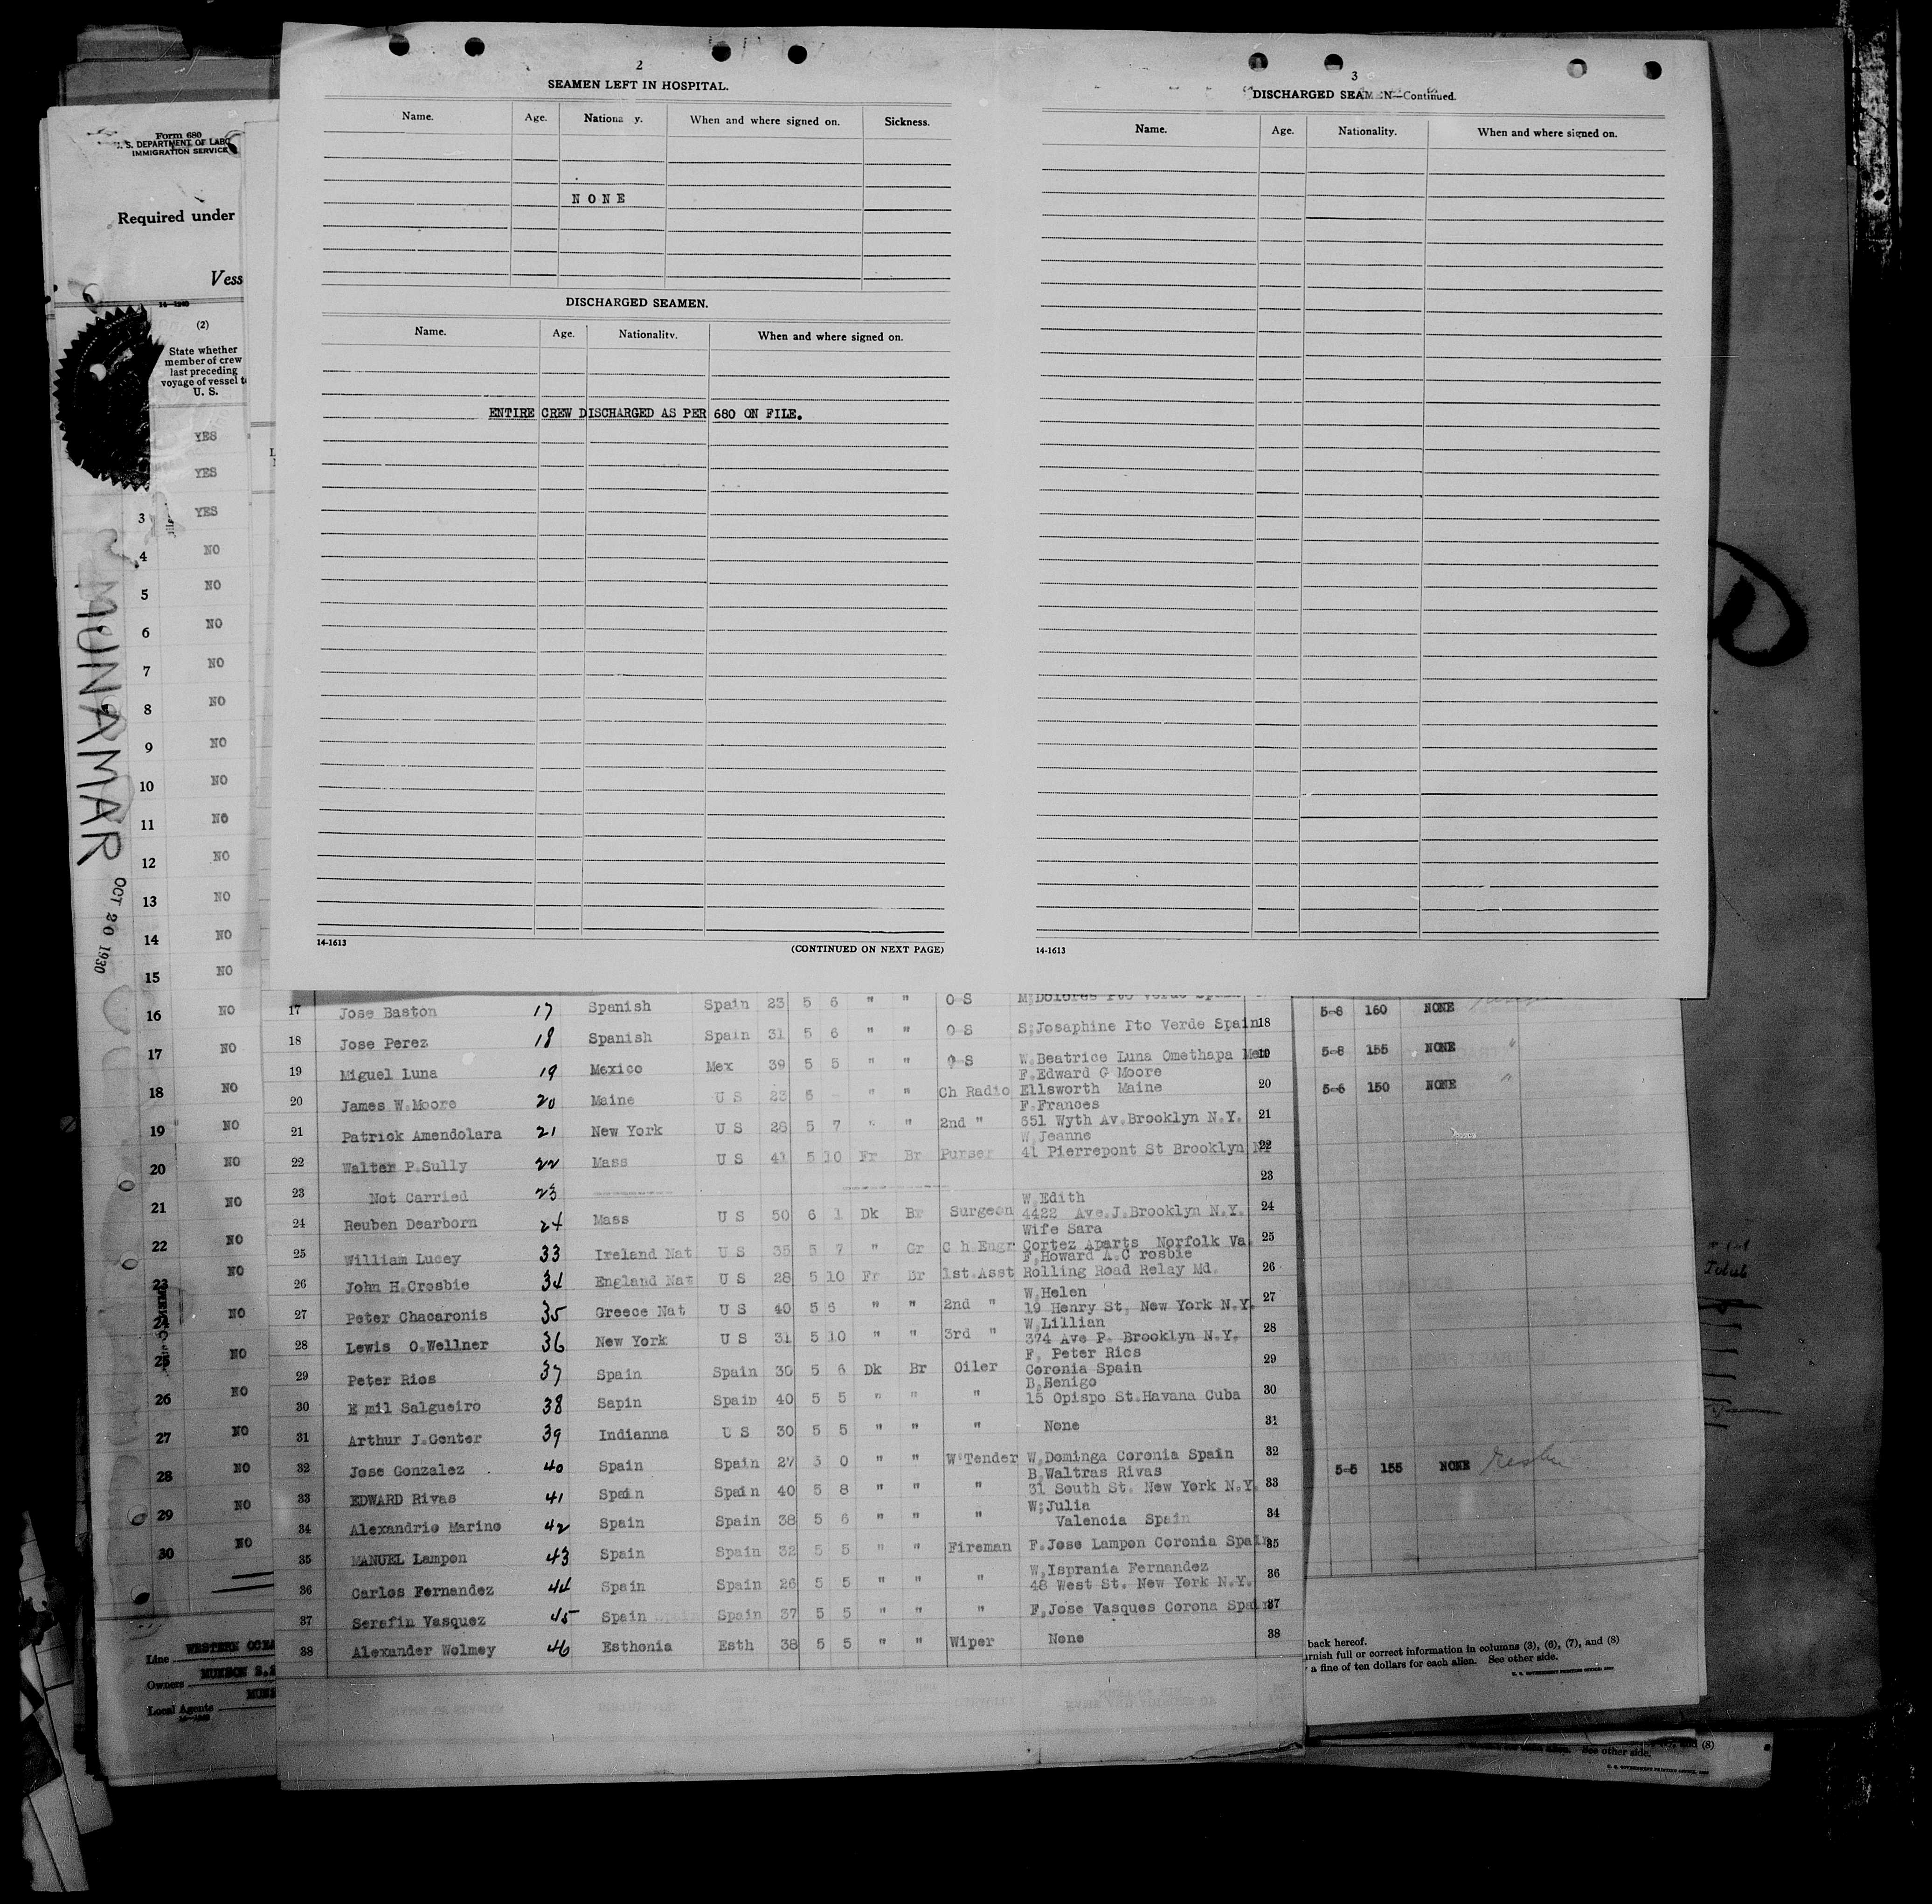 2
SEAMEN LEFT IN HOSPITAL.
Name. Age. Nationa y. When and where signed on. Sickness.
NONE
DISCHARGED SEAMEN.
Name. Age. Nationality. When and where signed on.
ENTIRE CREW DISCHARGED AS PER 680 ON FILE.
14-1613 (CONTINUED ON NEXT PAGE)
3
DISCHARGED SEAMEN—Continued.
Name. Age. Nationality. When and where signed on.
14-1613
Form 680
U. S. DEPARTMENT OF LABO
IMMIGRATION SERVICE
Required under
Vess
(2)
State whether
member of crew
last preceding
voyage of vessel to
U. S.
YES
YES
3 YES
4 NO
5 NO
6 NO
7 NO
8 NO
9 NO
10 NO
11 NO
12 NO
13 NO
14 NO
15 NO
16 NO
17 NO
18 NO
19 NO
20 NO
21 NO
22 NO
23 NO
24 NO
25 NO
26 NO
27 NO
28 NO
29 NO
30 NO
MUNAMAR
OCT 20 1930
Line WESTERN OCEA
Owners MUNSON S.S
Local Agents MUNS
17 Jose Baston 17 Spanish Spain 23 5 6 " " O S M;Dolores Pto Verde Spain
18 Jose Perez 18 Spanish Spain 31 5 6 " " O S S;Josaphine Pto Verde Spain 18
19 Miguel Luna 19 Mexico Mex 39 5 5 " " O S W.Beatrice Luna Omethapa Mex 19
F.Edward G Moore
20 James W.Moore 20 Maine U S 23 5 " " Ch Radio Ellsworth Maine 20
F.Frances
21 Patrick Amendolara 21 New York U S 28 5 7 " " 2nd " 651 Wyth Av.Brooklyn N.Y. 21
W,Jeanne
22 Walter P.Sully 22 Mass U S 41 5 10 Fr Br Purser 41 Pierrepont St Brooklyn NY 22
23 Not Carried 23 23
W,Edith
24 Reuben Dearborn 24 Mass U S 50 6 1 Dk Br Surgeon 4422 Ave.J.Brooklyn N.Y. 24
Wife Sara
25 William Lucey 33 Ireland Nat U S 35 5 7 " Gr C h Engr Cortez Aparts Norfolk Va. 25
F,Howard A.C rosbie
26 John H.Crosbie 34 England Nat U S 28 5 10 Fr Br 1st.Asst Rolling Road Relay Md. 26
W,Helen
27 Peter Chacaronis 35 Greece Nat U S 40 5 6 " " 2nd " 19 Henry St, New York N.Y. 27
W,Lillian
28 Lewis O.Wellner 36 New York U S 31 5 10 " " 3rd " 374 Ave P. Brooklyn N.Y. 28
F, Peter Rios
29 Peter Rios 37 Spain Spain 30 5 6 Dk Br Oiler Coronia Spain 29
B,Benigo
30 E mil Salgueiro 38 Sapin Spain 40 5 5 " " " 15 Opispo St.Havana Cuba 30
31 Arthur J.Genter 39 Indianna U S 30 5 5 " " " None 31
32 Jose Gonzalez 40 Spain Spain 27 5 0 " " W Tender W,Dominga Coronia Spain 32
B,Waltras Rivas
33 EDWARD Rivas 41 Spain Spain 40 5 8 " " " 31 South St. New York N.Y. 33
W;Julia
34 Alexandrio Marino 42 Spain Spain 38 5 6 " " " Valencia Spain 34
35 MANUEL Lampon 43 Spain Spain 32 5 5 " " Fireman F.Jose Lampon Coronia Spain 35
W,Isprania Fernandez
36 Carlos Fernandez 44 Spain Spain 26 5 5 " " " 48 West St. New York N.Y. 36
37 Serafin Vasquez 45 Spain Spain 37 5 5 " " " F,Jose Vasques Corona Spain 37
38 Alexander Wolmey 46 Esthonia Esth 38 5 5 " " Wiper None 38
5-8 160 NONE
5-8 155 NONE "
5-6 150 NONE "
5-5 155 NONE
back hereof.
urnish full or correct information in columns (3), (6), (7), and (8)
a fine of ten dollars for each alien. See other side.
U. S. GOVERNMENT PRINTING OFFICE
and (8)
See other side.
U. S. GOVERNMENT PRINTING OFFICE